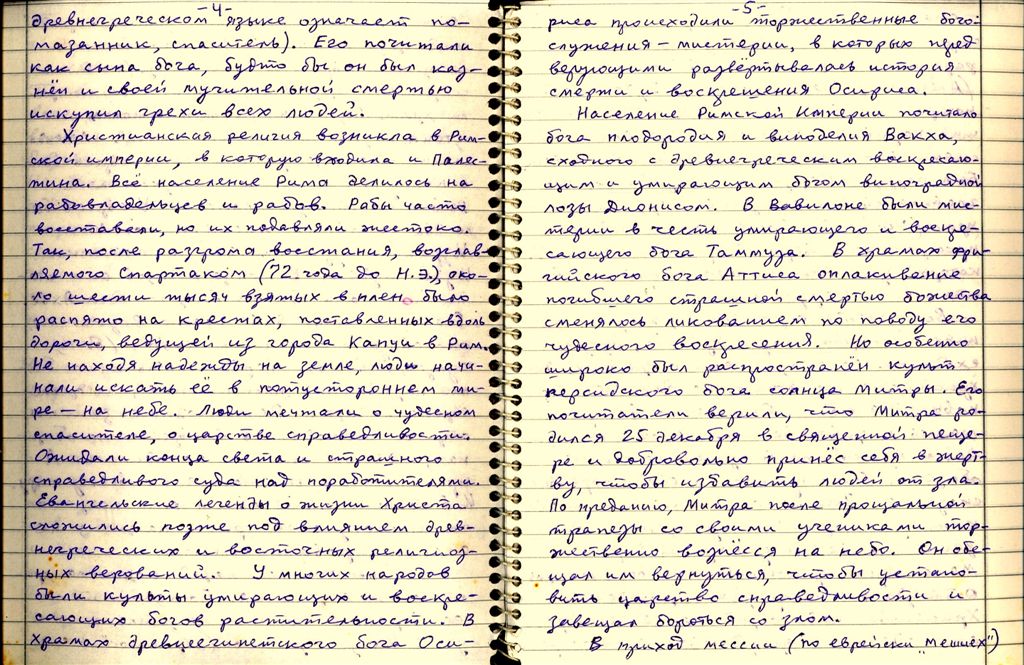 -4-
древнегреческом языке означает по-
мазанник, спаситель). Его почитали
как сына бога, будто бы он был каз-
нён и своей мучительной смертью
искупил грехи всех людей.
Христианская религия возникла в Рим-
ской империи, в которую входила и Палес-
тина. Всё население Рима делилось на
рабовладельцев и рабов. Рабы часто
восставали, но их подавляли жестоко.
Так, после разгрома восстания, возглав-
ляемого Спартаком (72 года до Н.Э.), око-
ло шести тысяч взятых в плен было
распято на крестах, поставленных вдоль
дороги, ведущей из города Капуи в Рим.
Не находя надежды на земле, люди начи-
нали искать её в потустороннем ми-
ре — на небе. Люди мечтали о чудесном
спасителе, о царстве справедливости.
Ожидали конца света и страшного
справедливого суда над поработителями.
Евангельские легенды о жизни Христа
сложились позже под влиянием древ-
негреческих и восточных религиоз-
ных верований. У многих народов
были культы умирающих и воскре-
сающих богов растительности. В
храмах древнеегипетского бога Оси-
-5-
риса происходили торжественные бого-
служения — мистерии, в которых перед
верующими развёртывалась история
смерти и воскрешения Осириса.
Население Римской Империи почитало
бога плодородия и виноделия Вакха,
сходного с древнегреческим воскресаю-
щим и умирающим богом виноградной
лозы Дионисом. В Вавилоне были мис-
терии в честь умирающего и воскре-
сающего бога Таммуза. В храмах фри-
гийского бога Аттиса оплакивание
погибшего страшной смертью божества
сменялось ликованием по поводу его
чудесного воскресения. Но особенно
широко был распространён культ
персидского бога солнца Митры. Его
почитатели верили, что Митра ро-
дился 25 декабря в священной пеще-
ре и добровольно принёс себя в жерт-
ву, чтобы избавить людей от зла.
По преданию, Митра после прощальной
трапезы со своими учениками тор-
жественно вознёсся на небо. Он обе-
щал им вернуться, чтобы устано-
вить царство справедливости и
завещал бороться со злом.
В приход мессии (по еврейски „мешиех")